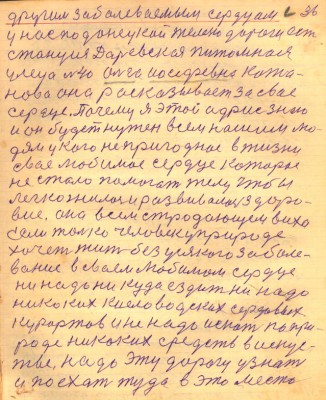 другим заболеваемым сердцам 26
у нас по донецкой железно дороги ест
станция Дарьевская питомная
улеца №40 Олга иосефревна Кожа-
нова она расказывает за свае
сердце. Почему я этой адрис знаю
и он будет нужен всем нашим лю-
дям у кого не пригодное в жизни
свае любимое сердце катораe
не стало помогат телу чтобы
легко жилос и развивалос здоро-
вие. она всем страдающем
сам толко человек у природе
хочет жит без усякого заболе-
вание в своем любимом сердце
ни надо ни куда ездит ни надо
никоких кисловодских сердовых
курортов и не надо искат по при-
роде никоких средств в искус-
тве, надо эту дорогу узнат
и поехат туда в это место